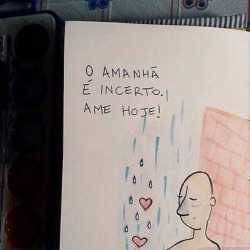 O AMANHÃ
É INCERTO.
AME HOJE!